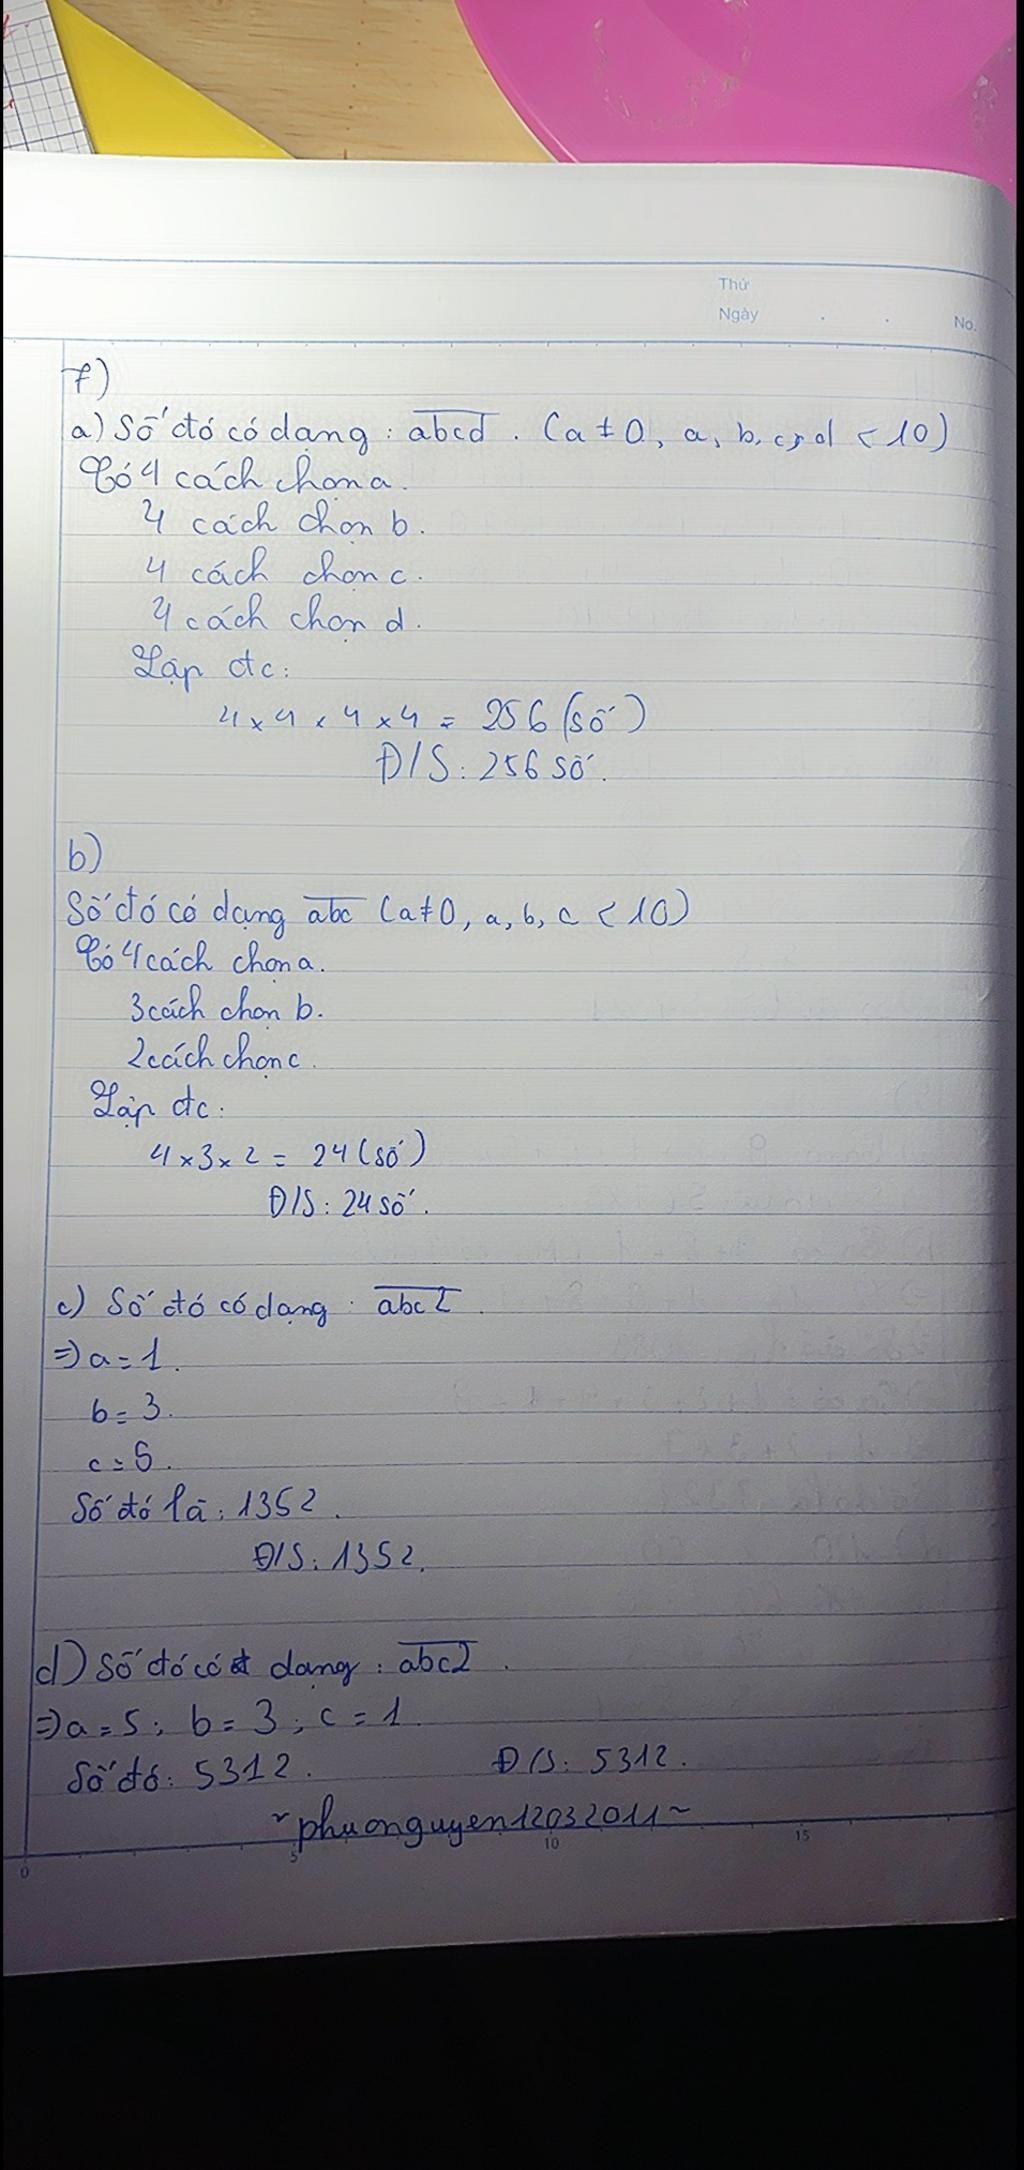 Thứ
Ngày . . No.
7)
a) Số đó có dạng : abcd . (a ≠ 0, a, b, c, d < 10)
Có 4 cách chọn a.
4 cách chọn b.
4 cách chọn c.
4 cách chọn d.
Lập đc:
4 x 4 x 4 x 4 = 256 (số)
Đ/S : 256 số.
b)
Số đó có dạng abc (a ≠ 0, a, b, c < 10)
Có 4 cách chọn a.
3 cách chọn b.
2 cách chọn c.
Lập đc:
4 x 3 x 2 = 24 (số)
Đ/S : 24 số.
c) Số đó có dạng : abc2.
=> a = 1.
b = 3.
c = 5.
Số đó là : 1352.
Đ/S : 1352.
d) Số đó có dạng : abc2.
=> a = 5 ; b = 3 ; c = 1.
Số đó : 5312. Đ/S : 5312.
~phuonguyen12032011~
0 5 10 15